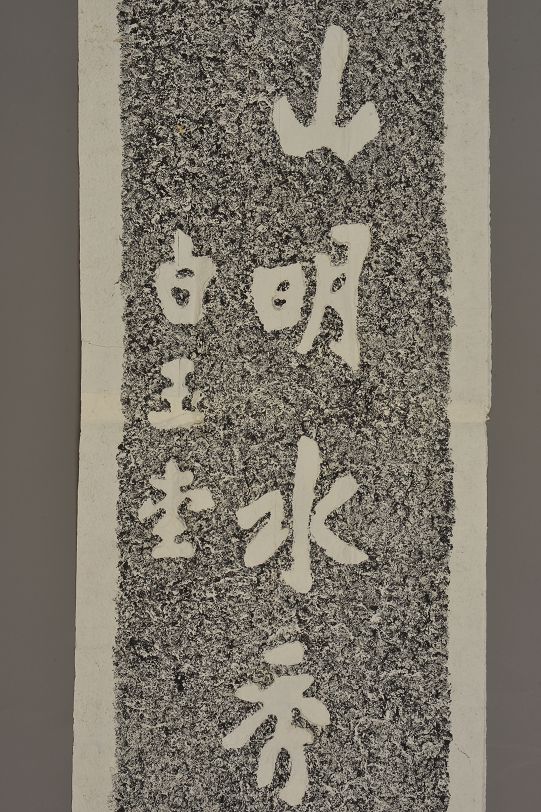 山明水秀
白玉蟾